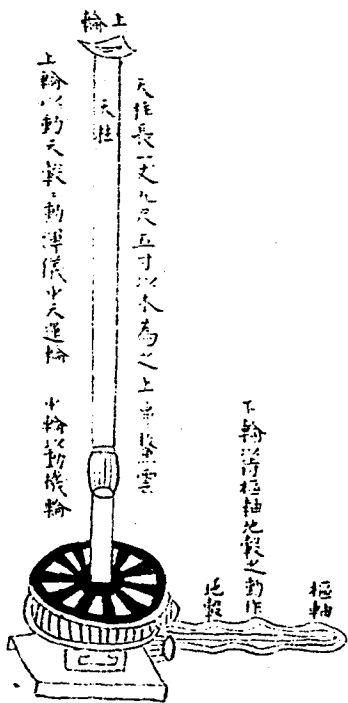 上輪
天柱
天柱長一丈九尺五寸以木為之上串鰲雲
上輪以動天轂〻動渾儀中天運輪
中輪以動機輪
樞軸
下輪以待樞軸地轂之動作
地轂